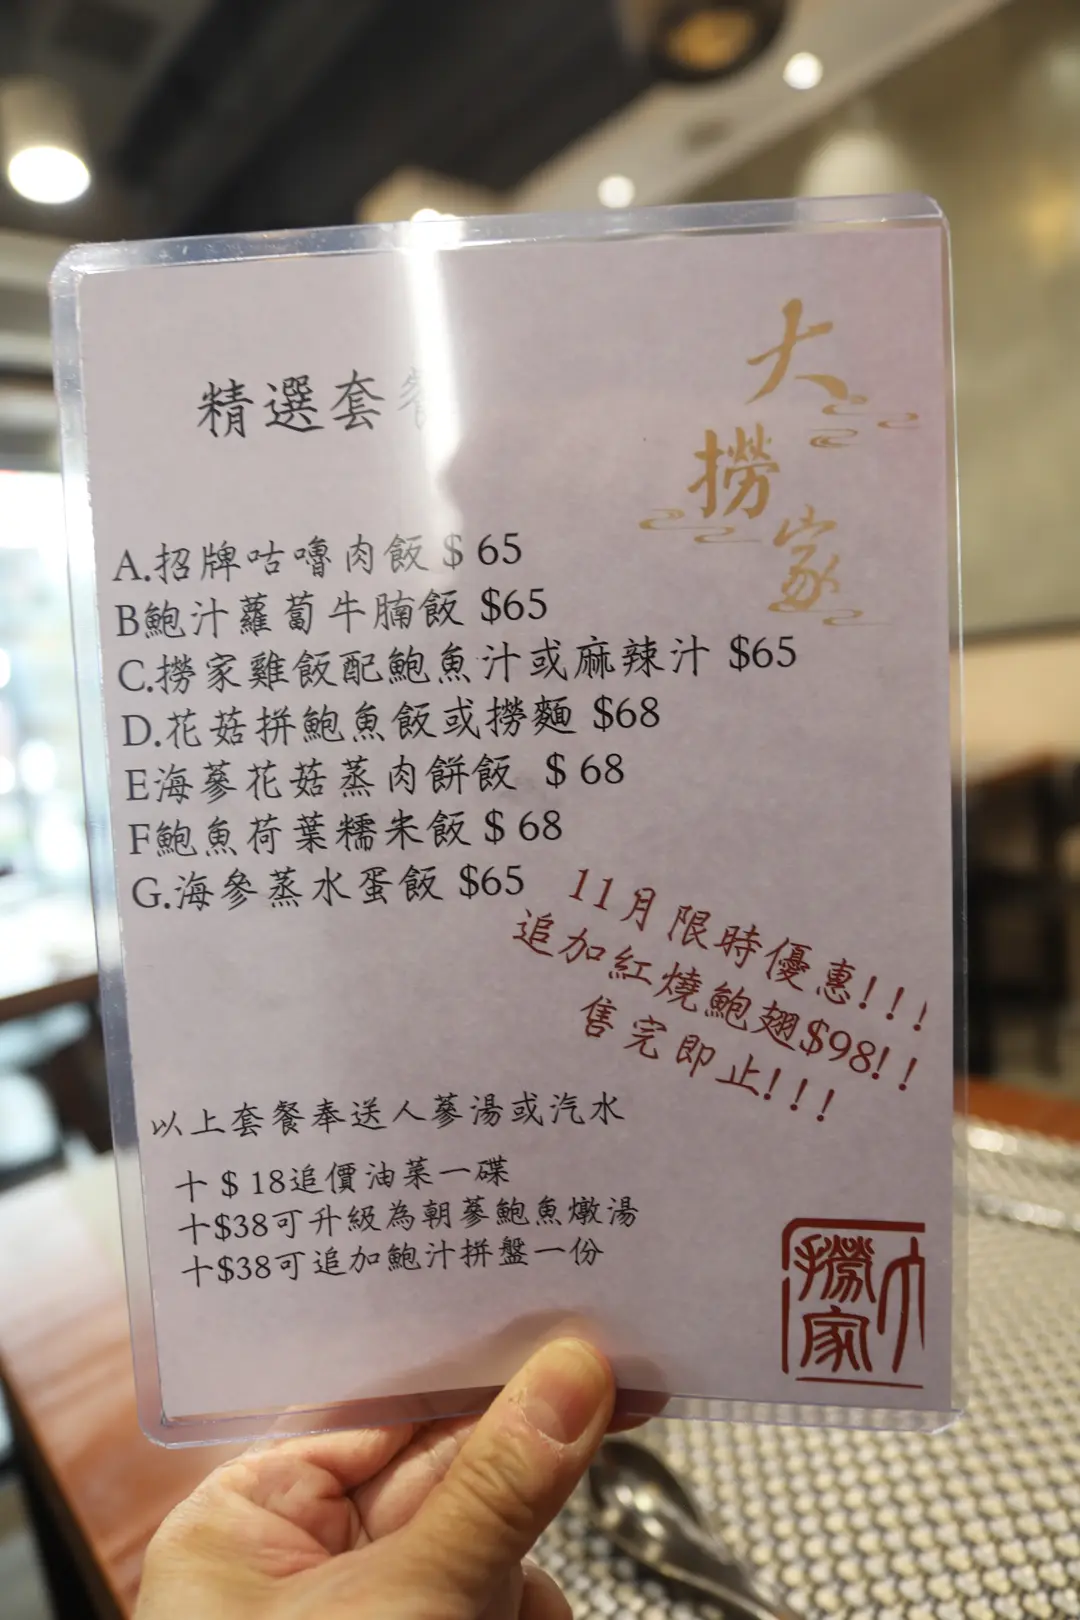 大撈家
精選套餐
A.招牌咕嚕肉飯 $ 65
B鮑汁蘿蔔牛腩飯 $65
C.撈家雞飯配鮑魚汁或麻辣汁 $65
D.花菇拼鮑魚飯或撈麵 $68
E海蔘花菇蒸肉餅飯 $ 68
F鮑魚荷葉糯米飯 $ 68
G.海參蒸水蛋飯 $65
11月限時優惠!!!
追加紅燒鮑翅$98!!
售完即止!!!
以上套餐奉送人蔘湯或汽水
十 $ 18追價油菜一碟
十$38可升級為朝蔘鮑魚燉湯
十$38可追加鮑汁拼盤一份
大撈家